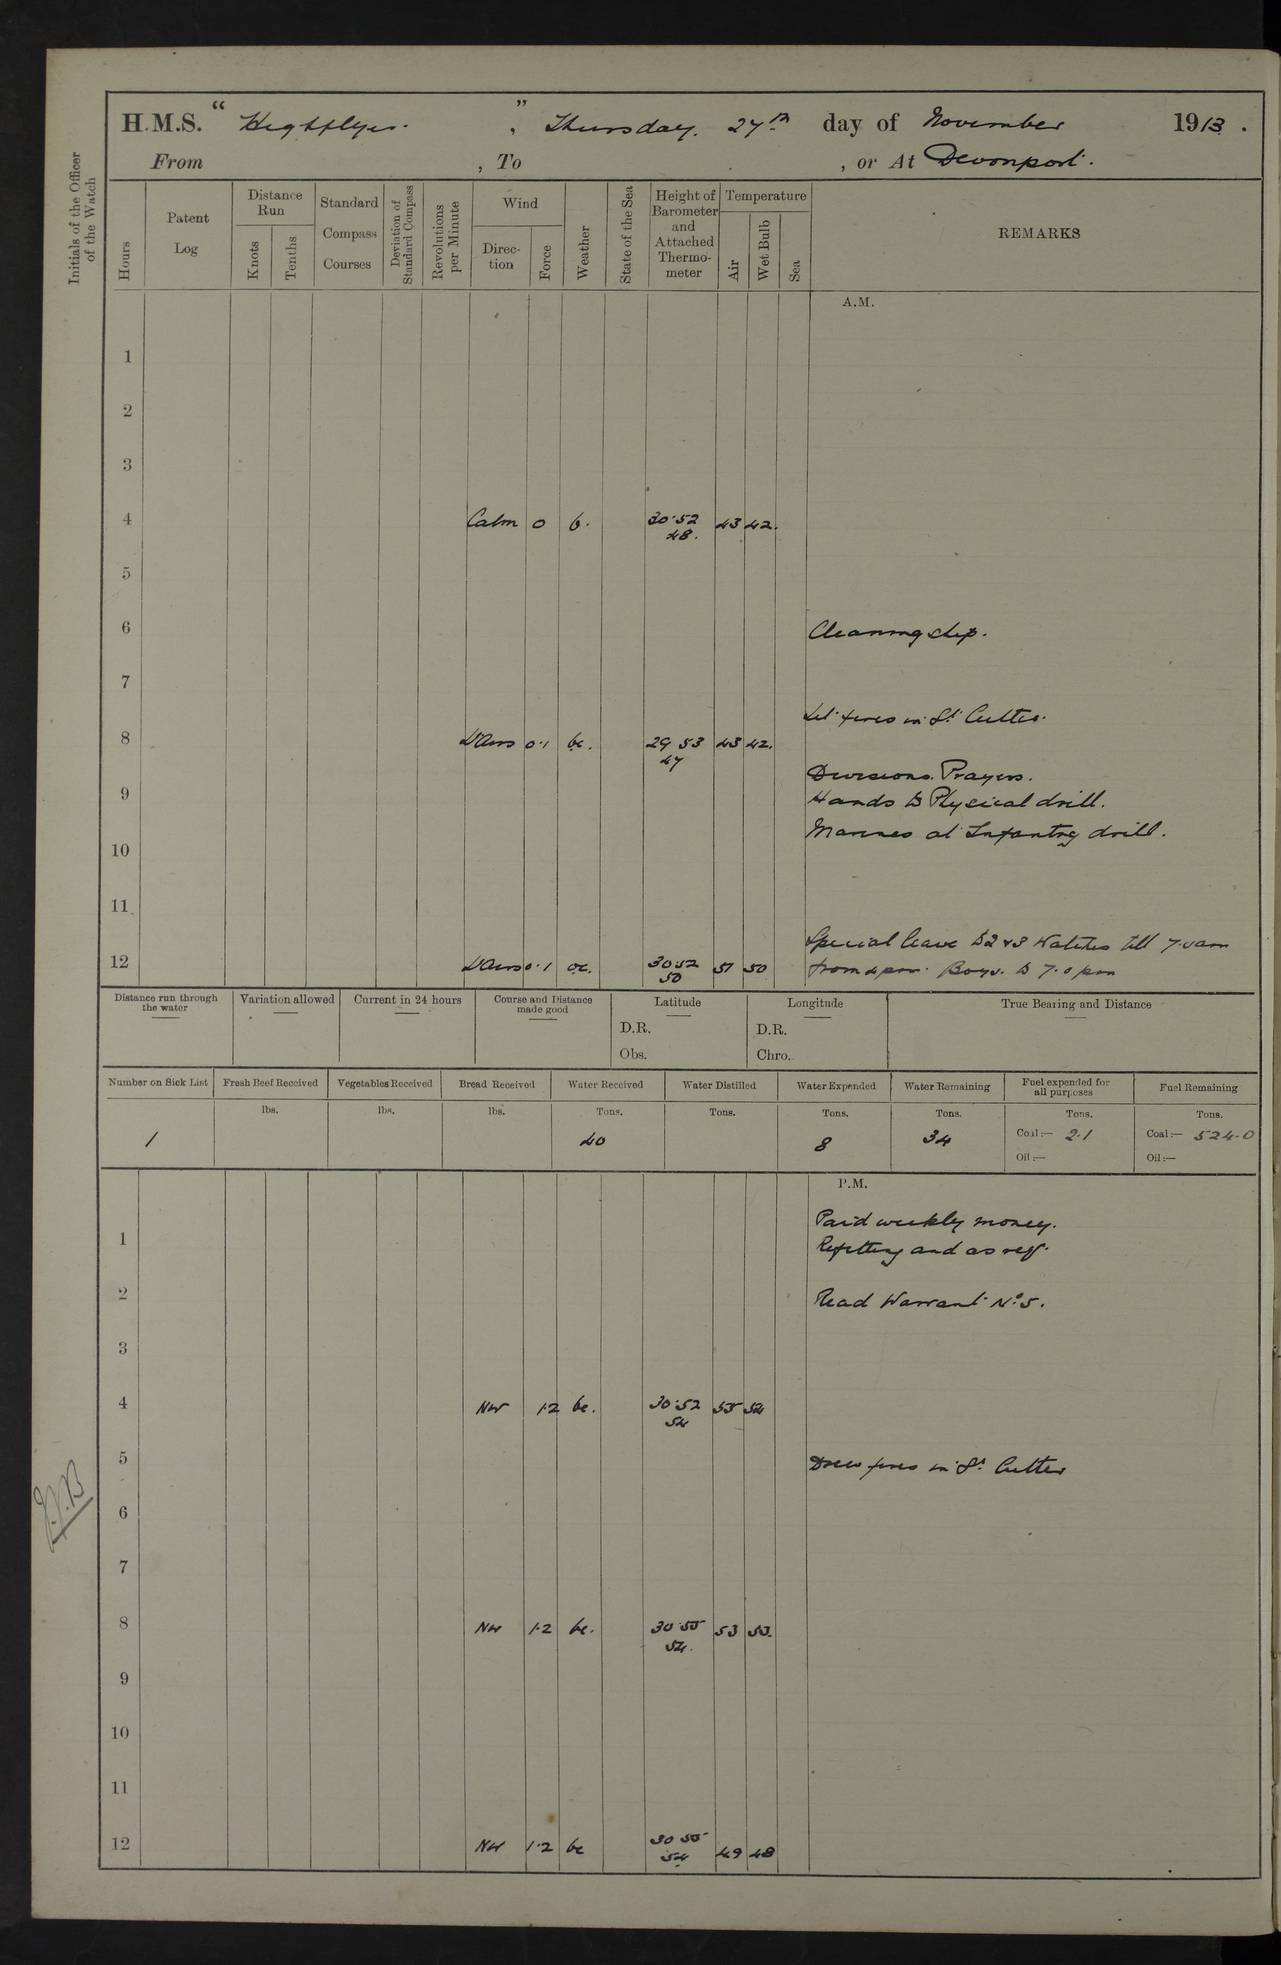 H.M.S. “ Highflyer. ” , Thursday. 27th day of November 1913.
From , To , or At Devonport.
Initials of the Officer of the Watch
Hours
Patent Log
Distance Run
Knots
Tenths
Standard Compass Courses
Deviation of Standard Compass
Revolutions per Minute
Wind
Direction
Force
Weather
State of the Sea
Height of Barometer and Attached Thermometer
Temperature
Air
Wet Bulb
Sea
REMARKS
A.M.
1
2
3
4 Calm 0 b. 30·52 48. 43 42.
5
6 Cleaning ship.
7
Lit fires in St Cutter.
8 L'Airs 0·1 bc. 29 53 47 43 42.
Divisions. Prayers.
9 Hands to Physical drill.
Marines at Infantry drill.
10
11
Special leave to 2 & 3 Watches till 7.0am
12 L'Airs 0·1 oc. 30 52 50 51 50 from 4 pm. Boys. to 7.0 pm
Distance run through the water
Variation allowed
Current in 24 hours
Course and Distance made good
Latitude
D.R.
Obs.
Longitude
D.R.
Chro.
True Bearing and Distance
Number on Sick List
Fresh Beef Received
Vegetables Received
Bread Received
Water Received
Water Distilled
Water Expended
Water Remaining
Fuel expended for all purposes
Fuel Remaining
lbs. lbs. lbs. Tons. Tons. Tons. Tons. Tons. Tons.
1 40 8 34 Coal:— 2·1 Coal:— 524·0
Oil:— Oil:—
P.M.
Paid weekly money.
1 Refitting and as req.
2 Read Warrant No 5.
3
4 NW 1·2 bc. 30·52 54 55 54
5 Drew fires in St Cutter
J.B
6
7
8 NW 1·2 bc. 30·55 54. 53 53.
9
10
11
12 NW 1·2 bc 30 55 54 49 48